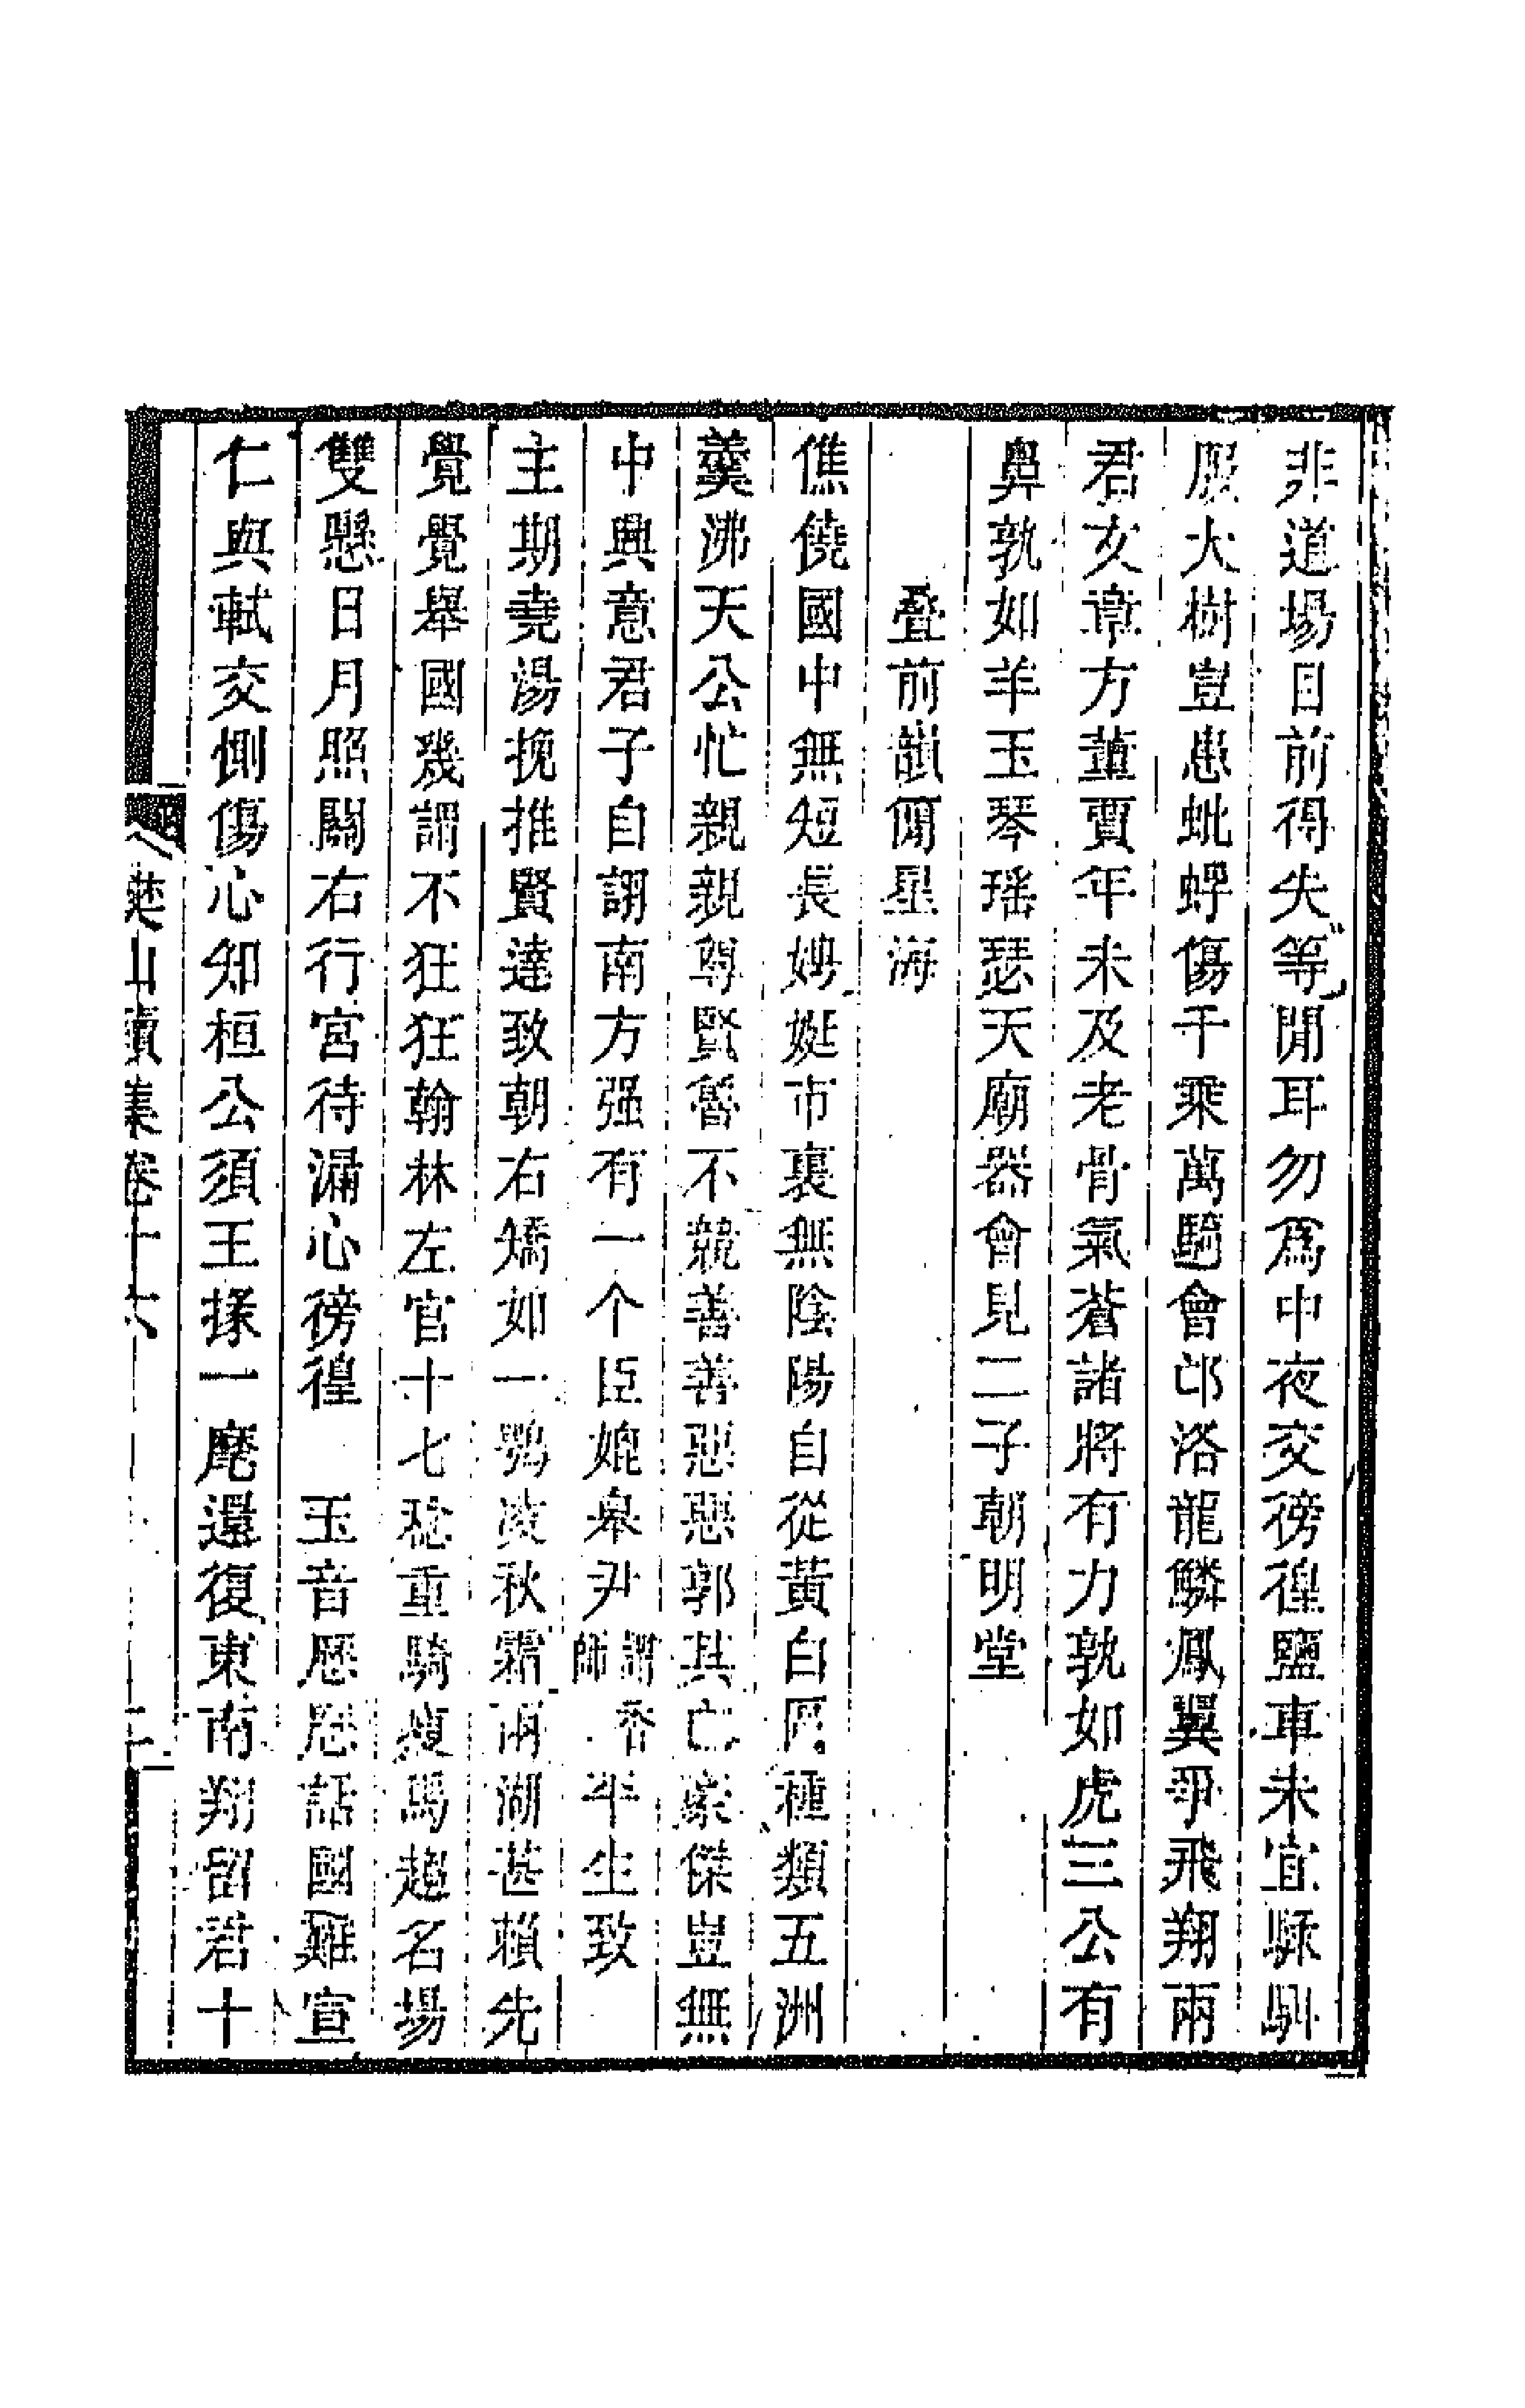 非道場目前得失等閒耳勿爲中夜交徬徨鹽車未宜縣馴
服大樹豈患蚍蜉傷千乘萬騎會邙洛龍鱗鳳翼爭飛翔兩
君文章方董賈年未及老骨氣蒼諸將有力孰如虎三公有
鼻孰如羊玉琴瑤瑟天廟器會見二子朝明堂
疊前韻簡星海
僬僥國中無短長娉婷市裏無陰陽自從黃白區種類五洲
羹沸天公忙親親尊賢魯不競善善惡惡郭其亡豪傑豈無
中興意君子自詡南方强有一个臣媲皋尹謂香師半生致
主期堯湯挽推賢達致朝右矯如一鶚凌秋霜兩湖甚賴先
覺覺舉國幾謂不狂狂翰林左官十七稔重騎瘦馬趨名場
雙懸日月照關右行宮待漏心徬徨 玉音慇懃話國難宣
仁與軾交惻傷心知桓公須王掾一麾還復東南翔留君十
樊山續集卷十六 二